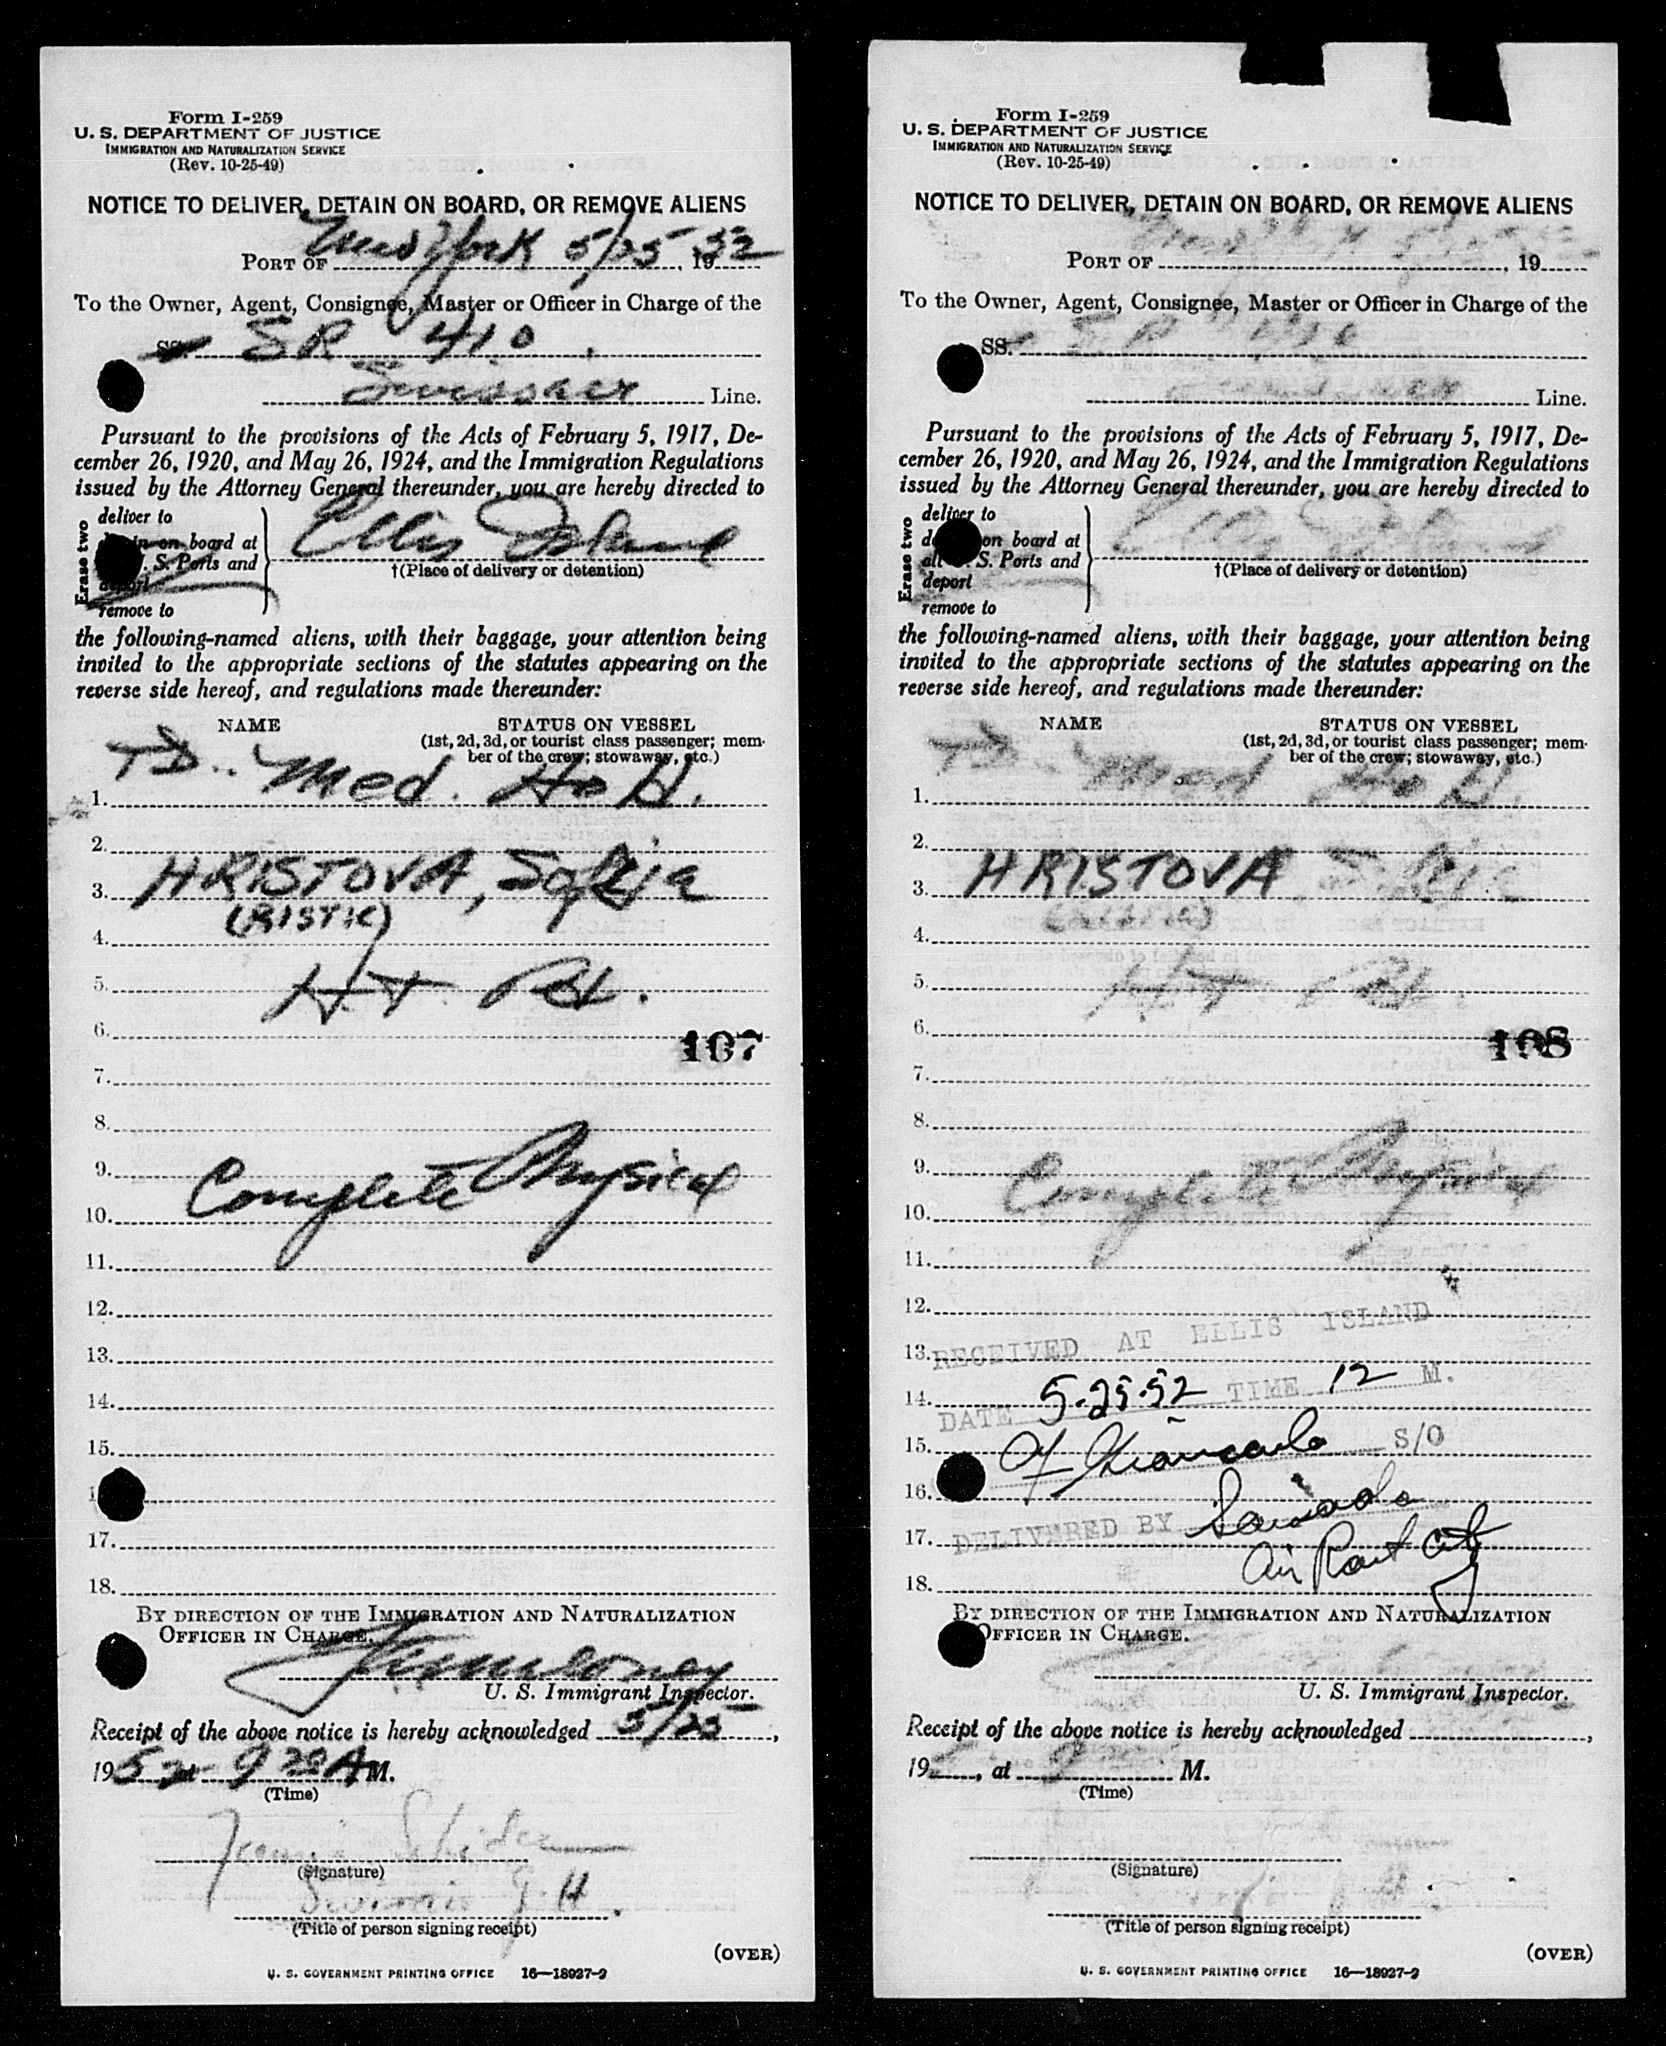 Form I-259
U. S. DEPARTMENT OF JUSTICE
IMMIGRATION AND NATURALIZATION SERVICE
(Rev. 10-25-49)
NOTICE TO DELIVER, DETAIN ON BOARD, OR REMOVE ALIENS
PORT OF New York 5/25 1952
To the Owner, Agent, Consignee, Master or Officer in Charge of the
SS. SR 410
Swissair Line.
Pursuant to the provisions of the Acts of February 5, 1917, De-
cember 26, 1920, and May 26, 1924, and the Immigration Regulations
issued by the Attorney General thereunder, you are hereby directed to
Erase two
deliver to
on board at
S. Ports and
deport
remove to
Ellis Island
†(Place of delivery or detention)
the following-named aliens, with their baggage, your attention being
invited to the appropriate sections of the statutes appearing on the
reverse side hereof, and regulations made thereunder:
NAME STATUS ON VESSEL
(1st, 2d, 3d, or tourist class passenger; mem-
ber of the crew; stowaway, etc.)
TD. Med. Ho H.
1.
2.
3. HRISTOVA, Sofija
(RISTIC)
4.
5. H.T.
6.
107
7.
8.
9. Complete Physical
10.
11.
12.
13.
14.
15.
17.
18.
BY DIRECTION OF THE IMMIGRATION AND NATURALIZATION
OFFICER IN CHARGE.
U. S. Immigrant Inspector.
Receipt of the above notice is hereby acknowledged 5/25,
1952, at 9 20 A M.
(Time)
(Signature)
(Title of person signing receipt)
(OVER)
U. S. GOVERNMENT PRINTING OFFICE 16—18927-2
Form I-259
U. S. DEPARTMENT OF JUSTICE
IMMIGRATION AND NATURALIZATION SERVICE
(Rev. 10-25-49)
NOTICE TO DELIVER, DETAIN ON BOARD, OR REMOVE ALIENS
PORT OF New York 5/25 52, 19
To the Owner, Agent, Consignee, Master or Officer in Charge of the
SS. SR 410
Swissair Line.
Pursuant to the provisions of the Acts of February 5, 1917, De-
cember 26, 1920, and May 26, 1924, and the Immigration Regulations
issued by the Attorney General thereunder, you are hereby directed to
Erase two
deliver to
on board at
all S. Ports and
deport
remove to
Ellis Island
†(Place of delivery or detention)
the following-named aliens, with their baggage, your attention being
invited to the appropriate sections of the statutes appearing on the
reverse side hereof, and regulations made thereunder:
NAME STATUS ON VESSEL
(1st, 2d, 3d, or tourist class passenger; mem-
ber of the crew; stowaway, etc.)
TD. Med Ho H.
1.
2.
3. HRISTOVA, Sofija
(RISTIC)
4.
5. H.T.
6.
108
7.
8.
9. Complete Physical
10.
11.
12.
13. RECEIVED AT ELLIS ISLAND
14. DATE 5-25-52 TIME 12 M.
15. S/O
16.
17. DELIVERED BY
Air Port City
18.
BY DIRECTION OF THE IMMIGRATION AND NATURALIZATION
OFFICER IN CHARGE.
U. S. Immigrant Inspector.
Receipt of the above notice is hereby acknowledged ,
19 , at 9 M.
(Time)
(Signature)
(Title of person signing receipt)
(OVER)
U. S. GOVERNMENT PRINTING OFFICE 16—18927-2